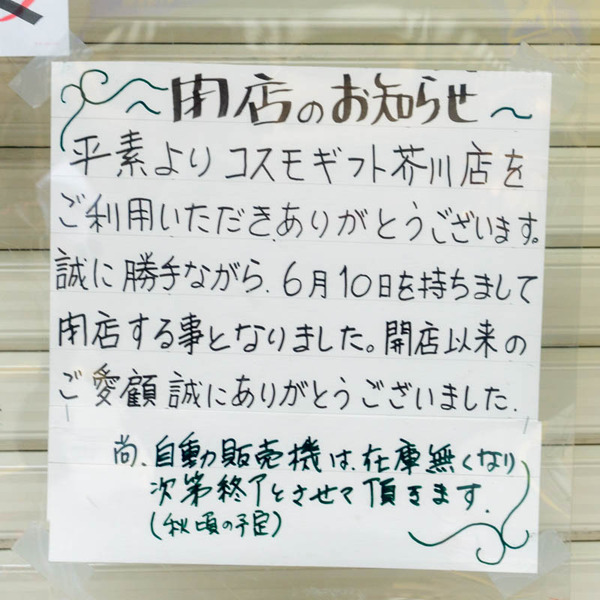 ～閉店のお知らせ～
平素よりコスモギフト芥川店を
ご利用いただきありがとうございます。
誠に勝手ながら、6月10日を持ちまして
閉店する事となりました。開店以来の
ご愛顧誠にありがとうございました。
尚、自動販売機は、在庫無くなり
次第終了とさせて頂きます。
(秋頃の予定)